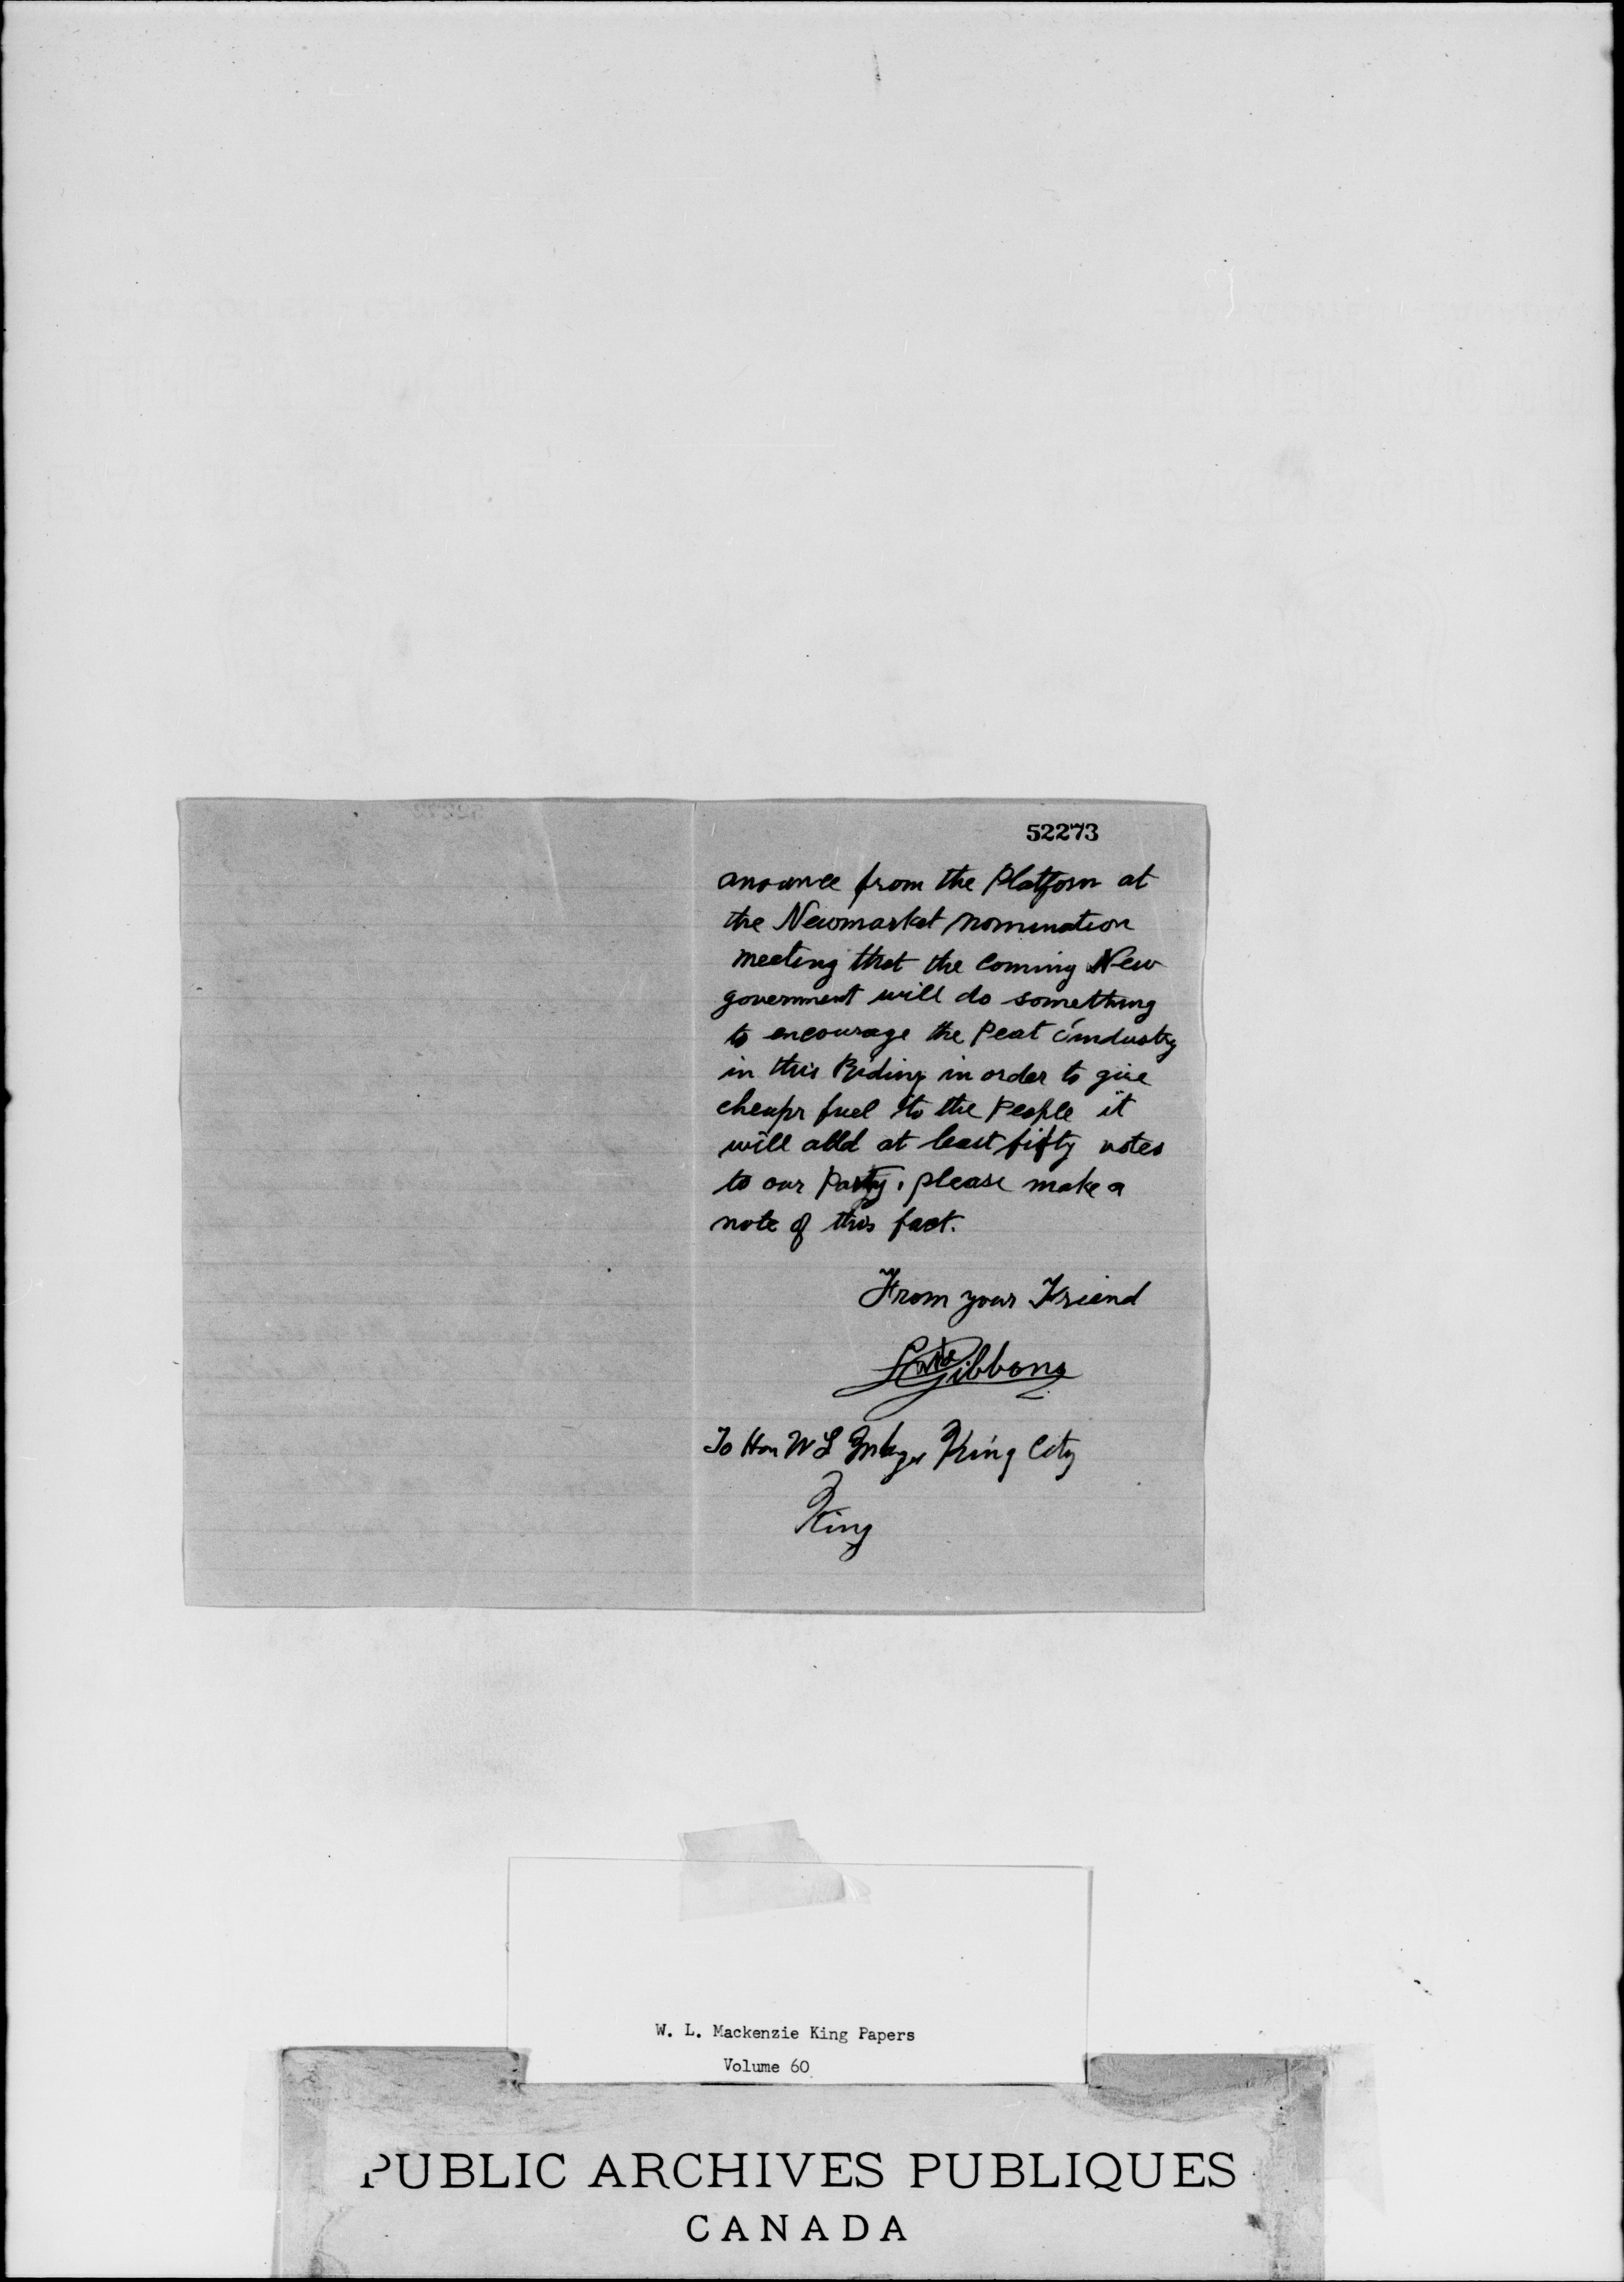 52273
anounce from the Platform at
the Newmarket nomination
meeting that the coming New
government will do something
to encourage the Peat industry
in this Riding in order to give
cheapr fuel to the People it
will add at least fifty votes
to our Party. please make a
note of this fact.
From your Friend
Gibbons
To Hon W L King City
King
W. L. Mackenzie King Papers
Volume 60
PUBLIC ARCHIVES PUBLIQUES
CANADA